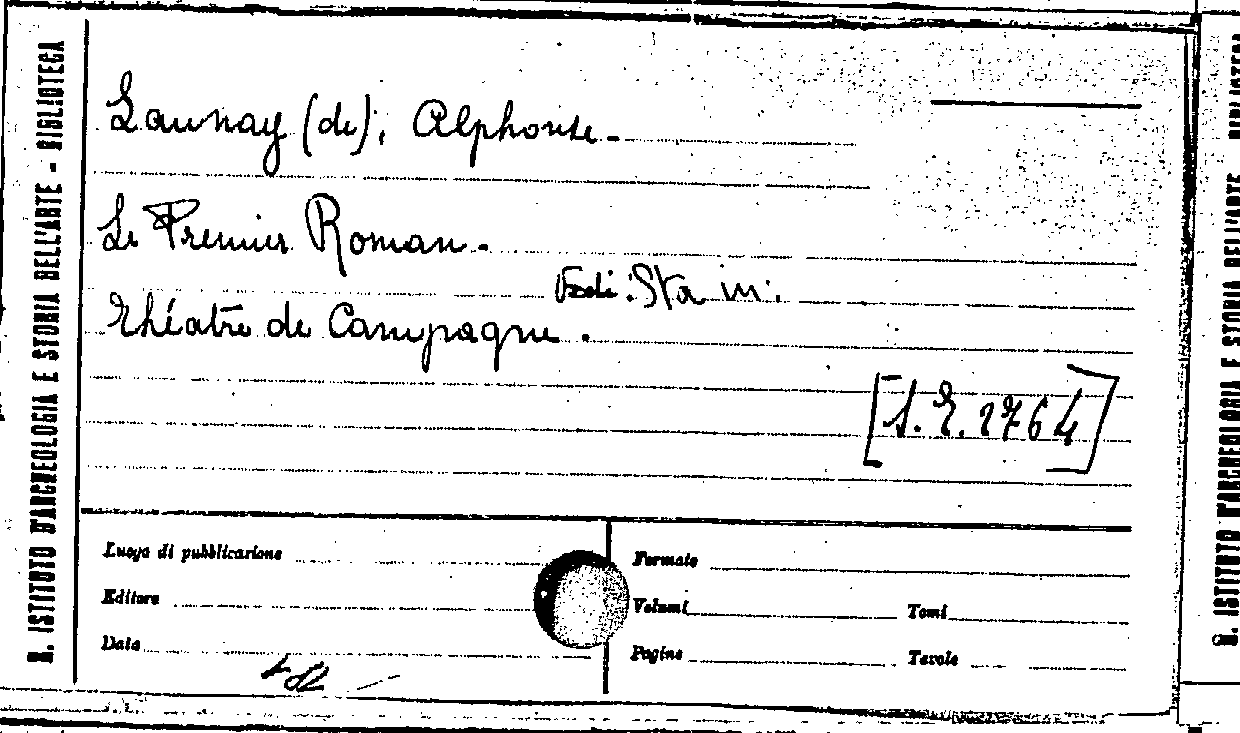 Launay (de), Alphonse.
Le Premier Roman.
Vedi: Sta in:
Théatre de Campagne.
[S. E. 1764]
R. ISTITUTO D'ARCHEOLOGIA E STORIA DELL'ARTE - BIBLIOTECA
Luogo di pubblicazione
Formato
Editore
Volumi
Tomi
Data
Pagine
Tavole
R. ISTITUTO D'ARCHEOLOGIA E STORIA DELL'ARTE BIBLIOTECA